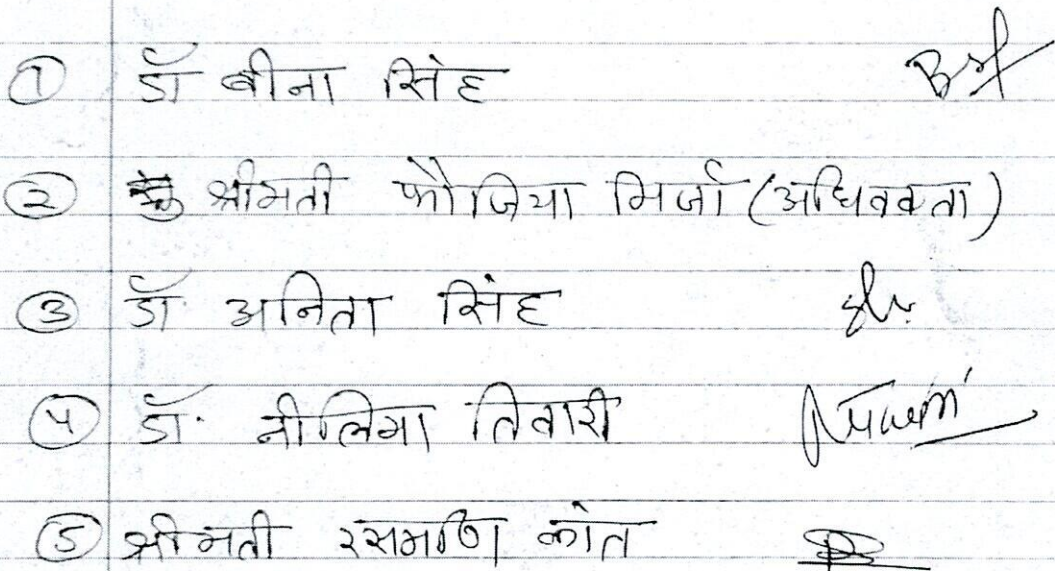 ① डॉ बीना सिंह
② श्रीमती फौजिया मिर्जा (अधिवक्ता)
③ डॉ. अनिता सिंह
④ डॉ. नीलिमा तिवारी
⑤ श्रीमती रसमणि कोत